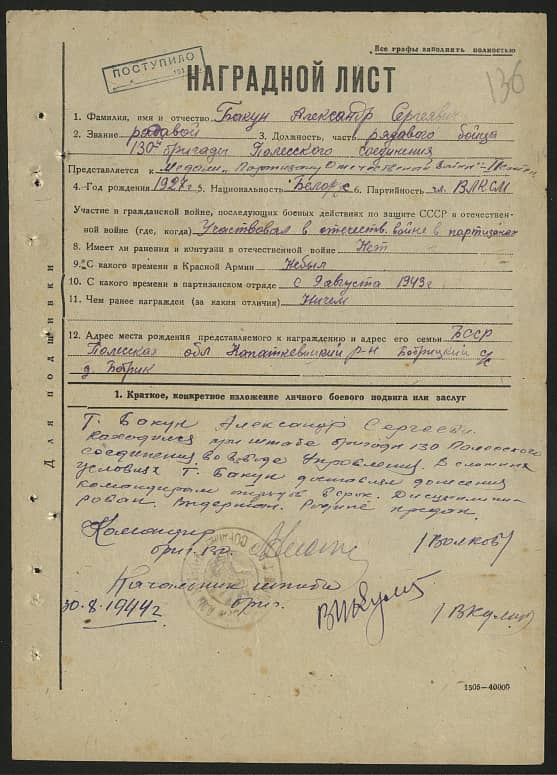 Все графы заполнять полностью
ПОСТУПИЛО
136
НАГРАДНОЙ ЛИСТ
1. Фамилия, имя и отчество Бакун Александр Сергеевич
2. Звание рядовой 3. Должность, часть рядового бойца
130й бригады Полесского соединения
Представляется к Медали, Партизану Отечественной Войны
4. Год рождения 1927 г 5. Национальность Белорус 6. Партийность чл. ВЛКСМ
Участие в гражданской войне, последующих боевых действиях по защите СССР и отечествен-
ной войне (где, когда) Участвовал в отечеств. войне в партизанах
8. Имеет ли ранения и контузии в отечественной войне Нет
9. С какого времени в Красной Армии Небыл
10. С какого времени в партизанском отряде с 9 августа 1943 г
11. Чем ранее награжден (за какия отличия) Ничем
12. Адрес места рождения представляемого к награждению и адрес его семьи БССР
Полесская обл Копаткевичский р-н Бобрицкий с/с
д Бобрик
Для подшивки
1. Краткое, конкретное изложение личного боевого подвига или заслуг
Т. Бакун Александр Сергееви.
находился при штабе бригады 130 Полесского
соединения во взводе Управления. В
условиях Т. Бакун доставлял донесения
командирам в срок. Дисциплини-
рован. Выдержан. Родине предан.
Командир
бриг. /Волков/
Начальник штаба
30.8.1944 г. бриг.
1505—40000